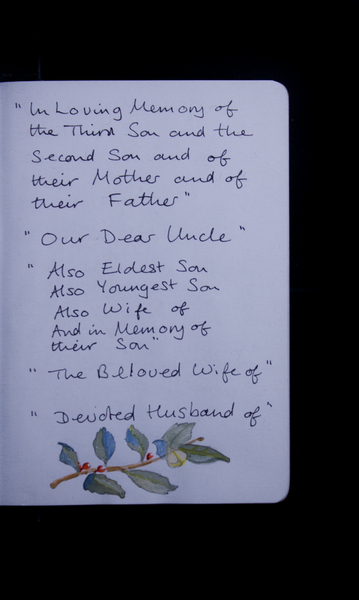 " In Loving Memory of
the Third Son and the
Second Son and of
their Mother and of
their Father "
" Our Dear Uncle "
" Also Eldest Son
Also Youngest Son
Also Wife of
And in Memory of
their Son "
" The Beloved Wife of "
" Devoted Husband of "